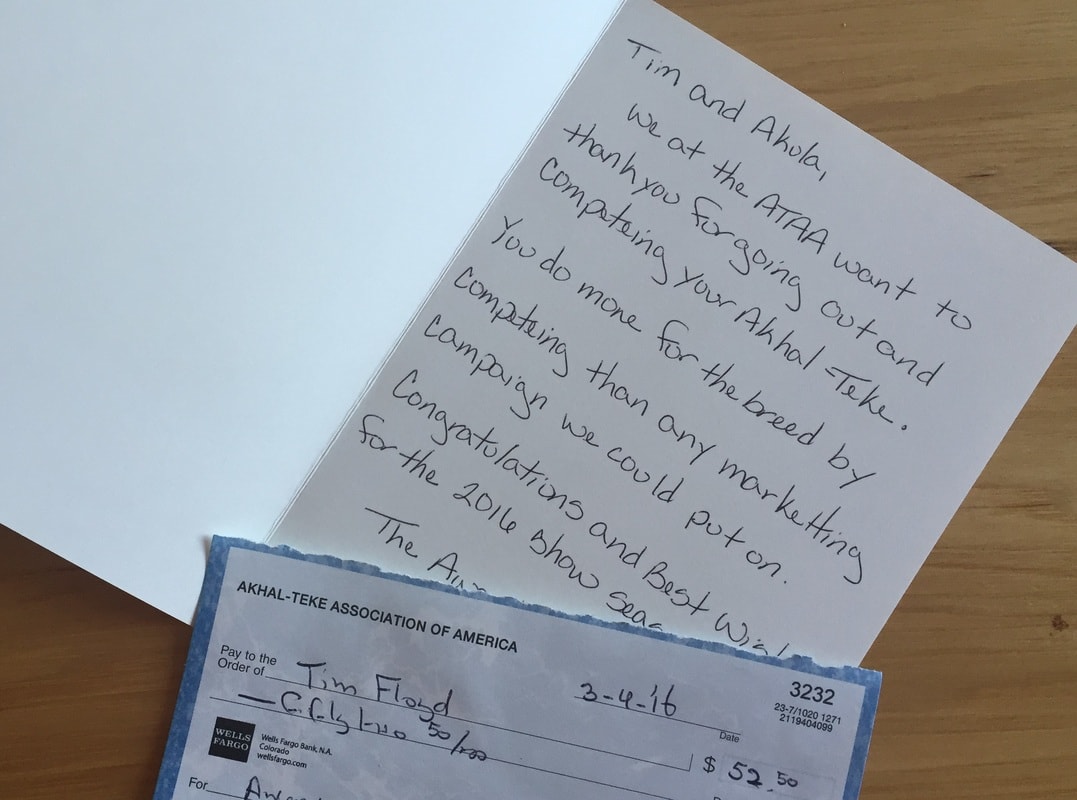 Tim and Akula,
we at the ATAA want to
thank you for going out and
competeing your Akhal Teke.
You do more for the breed by
competeing than any marketting
campaign we could put on.
Congratulations and Best
for the 2016 show
The
AKHAL-TEKE ASSOCIATION OF AMERICA
3232
23-7/1020 1271
2119404099
Pay to the
Order of Tim Floyd
3-4-'16
Date
50/100
$ 52.50
WELLS
FARGO
Wells Fargo Bank, N.A.
Colorado
wellsfargo.com
For